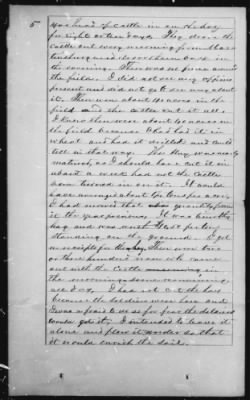 5
head of Cattle in on the day
for eight or ten days. They drove the
Cattle out every morning from
and drove them back in
the evening. There was no fence around
the field. I did not see any officers
present and did not get to see any about
it. There were about 40 acres in the
field and the Cattle eat it all
I know there were about 40 acres in
the field because I had had it in
wheat and had it and could
tell in that way. The Hay was nearly
matured, as I should have cut it in
about a week had not the Cattle
been turned in on it. It would
have averaged about 1/2 tons per acre
I had mowed that ground before
it the year previous. It was timothy
hay and was worth $20 per ton
standing on the ground. I got
no receipts for the hay. There were two
or three hundred men who came
out with the Cattle in
the morning some remaining
all day. I had not cut the hay
because the soldiers were here and
I was afraid to do so for fear the soldiers
would get it. I intended to leave it
alone and plow it under so that
it would enrich the soil.